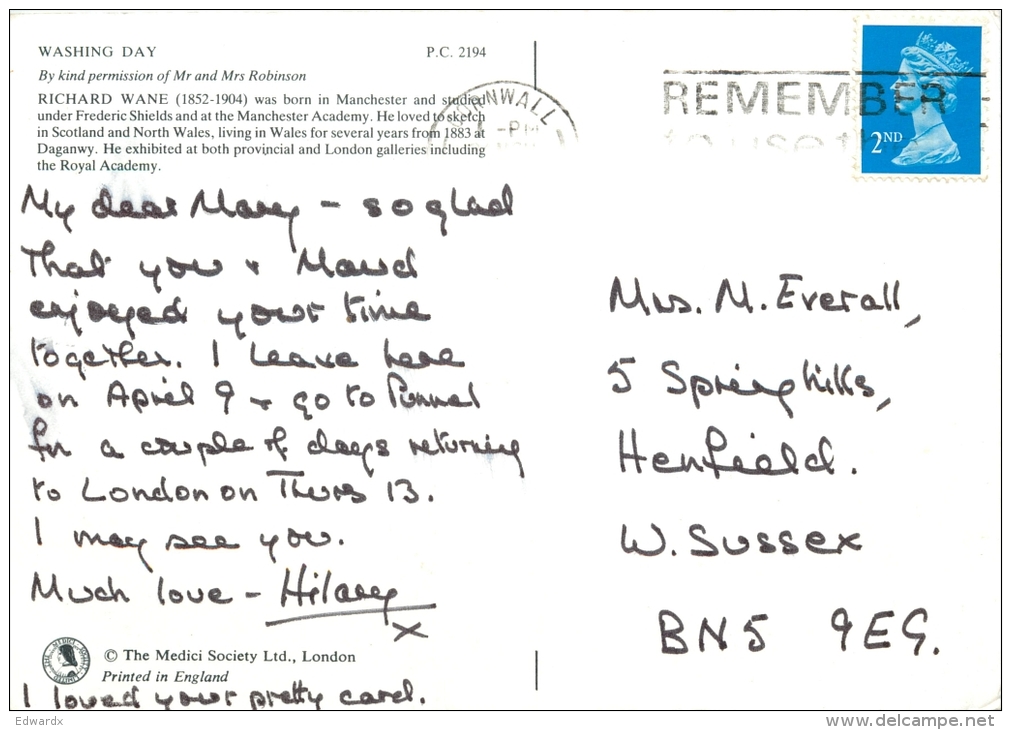 WASHING DAY P.C. 2194
By kind permission of Mr and Mrs Robinson
RICHARD WANE (1852-1904) was born in Manchester and studied
under Frederic Shields and at the Manchester Academy. He loved to sketch
in Scotland and North Wales, living in Wales for several years from 1883 at
Daganwy. He exhibited at both provincial and London galleries including
the Royal Academy.
My dear Mary - so glad
that you + Maud
enjoyed your time
together. I leave here
on April 9 + go to
for a couple of days returning
to London on Thurs 13.
I may see you.
Much love - Hilary
x
© The Medici Society Ltd., London
Printed in England
I loved your pretty card.
CORNWALL
-PM
REMEMBER
to use th
2ND
Mrs. M. Everall,
5 Springhills,
Henfield.
W. Sussex
BN5 9EG.
Edwardx
www.delcampe.net